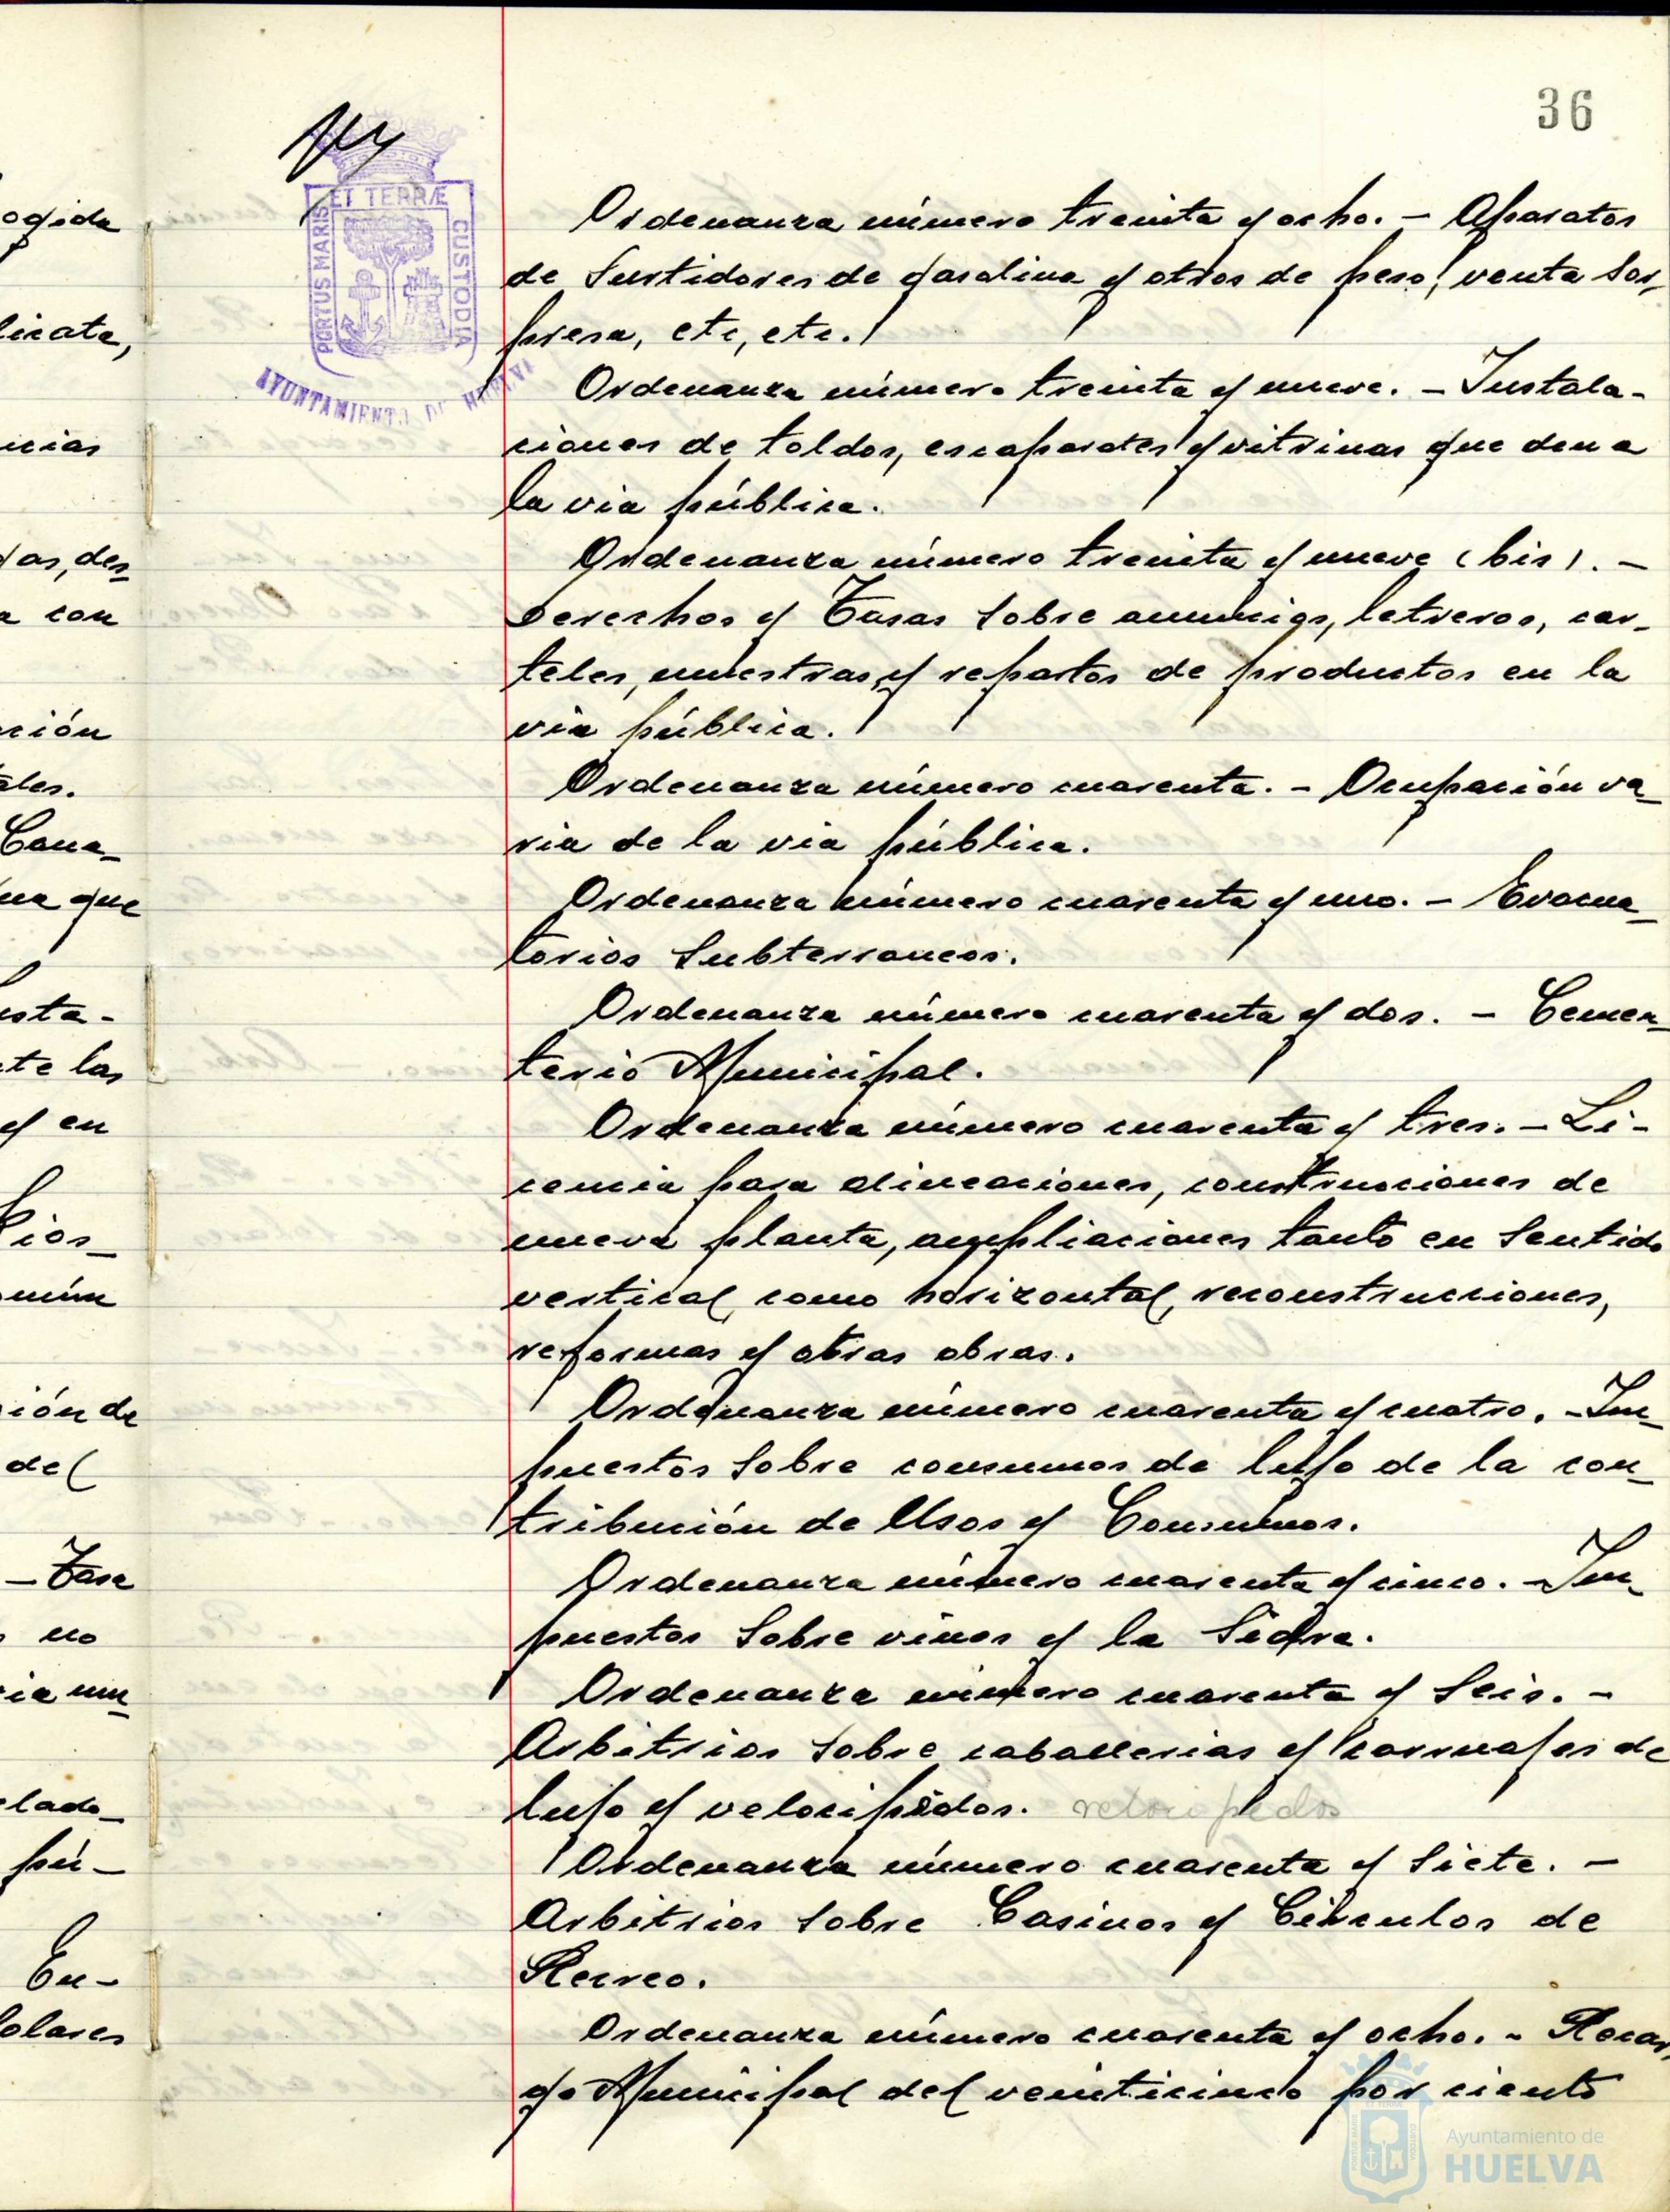 36
PORTUS MARIS ET TERRÆ CUSTODIA
AYUNTAMIENTO DE HUELVA
Ordenanza número treinta y ocho. - Aparatos
de Surtidores de gasolina y otros de peso, venta Sor-
presa, etc, etc.
Ordenanza número treinta y nueve. - Instala-
ciones de toldos, escaparates y vitrinas que den a
la via pública.
Ordenanza número treinta y nueve (bis). -
Derechos y Tasas Sobre anuncios, letreros, car-
teles, muestras y repartos de productos en la
via pública.
Ordenanza número cuarenta. - Ocupación va-
ria de la via pública.
Ordenanza número cuarenta y uno. - Evacua-
torios Subterraneos.
Ordenanza número cuarenta y dos. - Cemen-
terio Municipal.
Ordenanza número cuarenta y tres. - Li-
cencia para alineaciones, construcciones de
nueva planta, ampliaciones tanto en Sentido
vertical, como horizontal, reconstrucciones,
reformas y otras obras.
Ordenanza número cuarenta y cuatro. - Im-
puestos Sobre consumos de lujo de la con-
tribución de Usos y Consumos.
Ordenanza número cuarenta y cinco. - Im-
puestos Sobre vinos y la Sidra.
Ordenanza número cuarenta y Seis. -
Arbitrios Sobre caballerias y carruajes de
lujo y velocipedos. velocipedos
Ordenanza número cuarenta y Siete. -
Arbitrios Sobre Casinos y Circulos de
Recreo.
Ordenanza número cuarenta y ocho. - Recar-
go Municipal del veinticinco por ciento
ogida
licate,
ncias
das, des-
a con
ción
ales.
Cana-
ua que
usta-
te las
y en
cios-
mún
ión de
del
- Tasa
s no
cia mu-
clado-
pú-
En-
Solares
Ayuntamiento de
HUELVA